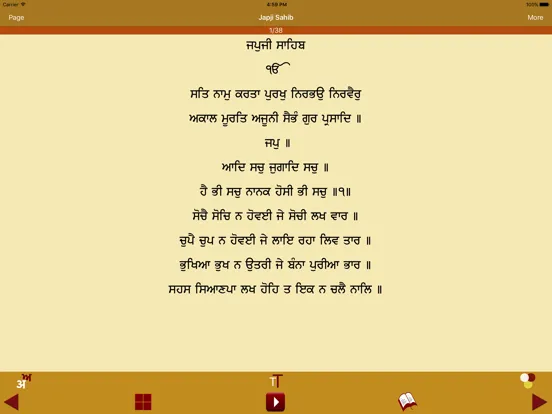 Carrier 4:58 PM 100%
Page Japji Sahib More
1/38
ਜਪੁਜੀ ਸਾਹਿਬ
ੴ
ਸਤਿ ਨਾਮੁ ਕਰਤਾ ਪੁਰਖੁ ਨਿਰਭਉ ਨਿਰਵੈਰੁ
ਅਕਾਲ ਮੂਰਤਿ ਅਜੂਨੀ ਸੈਭੰ ਗੁਰ ਪ੍ਰਸਾਦਿ ॥
ਜਪੁ ॥
ਆਦਿ ਸਚੁ ਜੁਗਾਦਿ ਸਚੁ ॥
ਹੈ ਭੀ ਸਚੁ ਨਾਨਕ ਹੋਸੀ ਭੀ ਸਚੁ ॥੧॥
ਸੋਚੈ ਸੋਚਿ ਨ ਹੋਵਈ ਜੇ ਸੋਚੀ ਲਖ ਵਾਰ ॥
ਚੁਪੈ ਚੁਪ ਨ ਹੋਵਈ ਜੇ ਲਾਇ ਰਹਾ ਲਿਵ ਤਾਰ ॥
ਭੁਖਿਆ ਭੁਖ ਨ ਉਤਰੀ ਜੇ ਬੰਨਾ ਪੁਰੀਆ ਭਾਰ ॥
ਸਹਸ ਸਿਆਣਪਾ ਲਖ ਹੋਹਿ ਤ ਇਕ ਨ ਚਲੈ ਨਾਲਿ ॥
अ ਅ TT